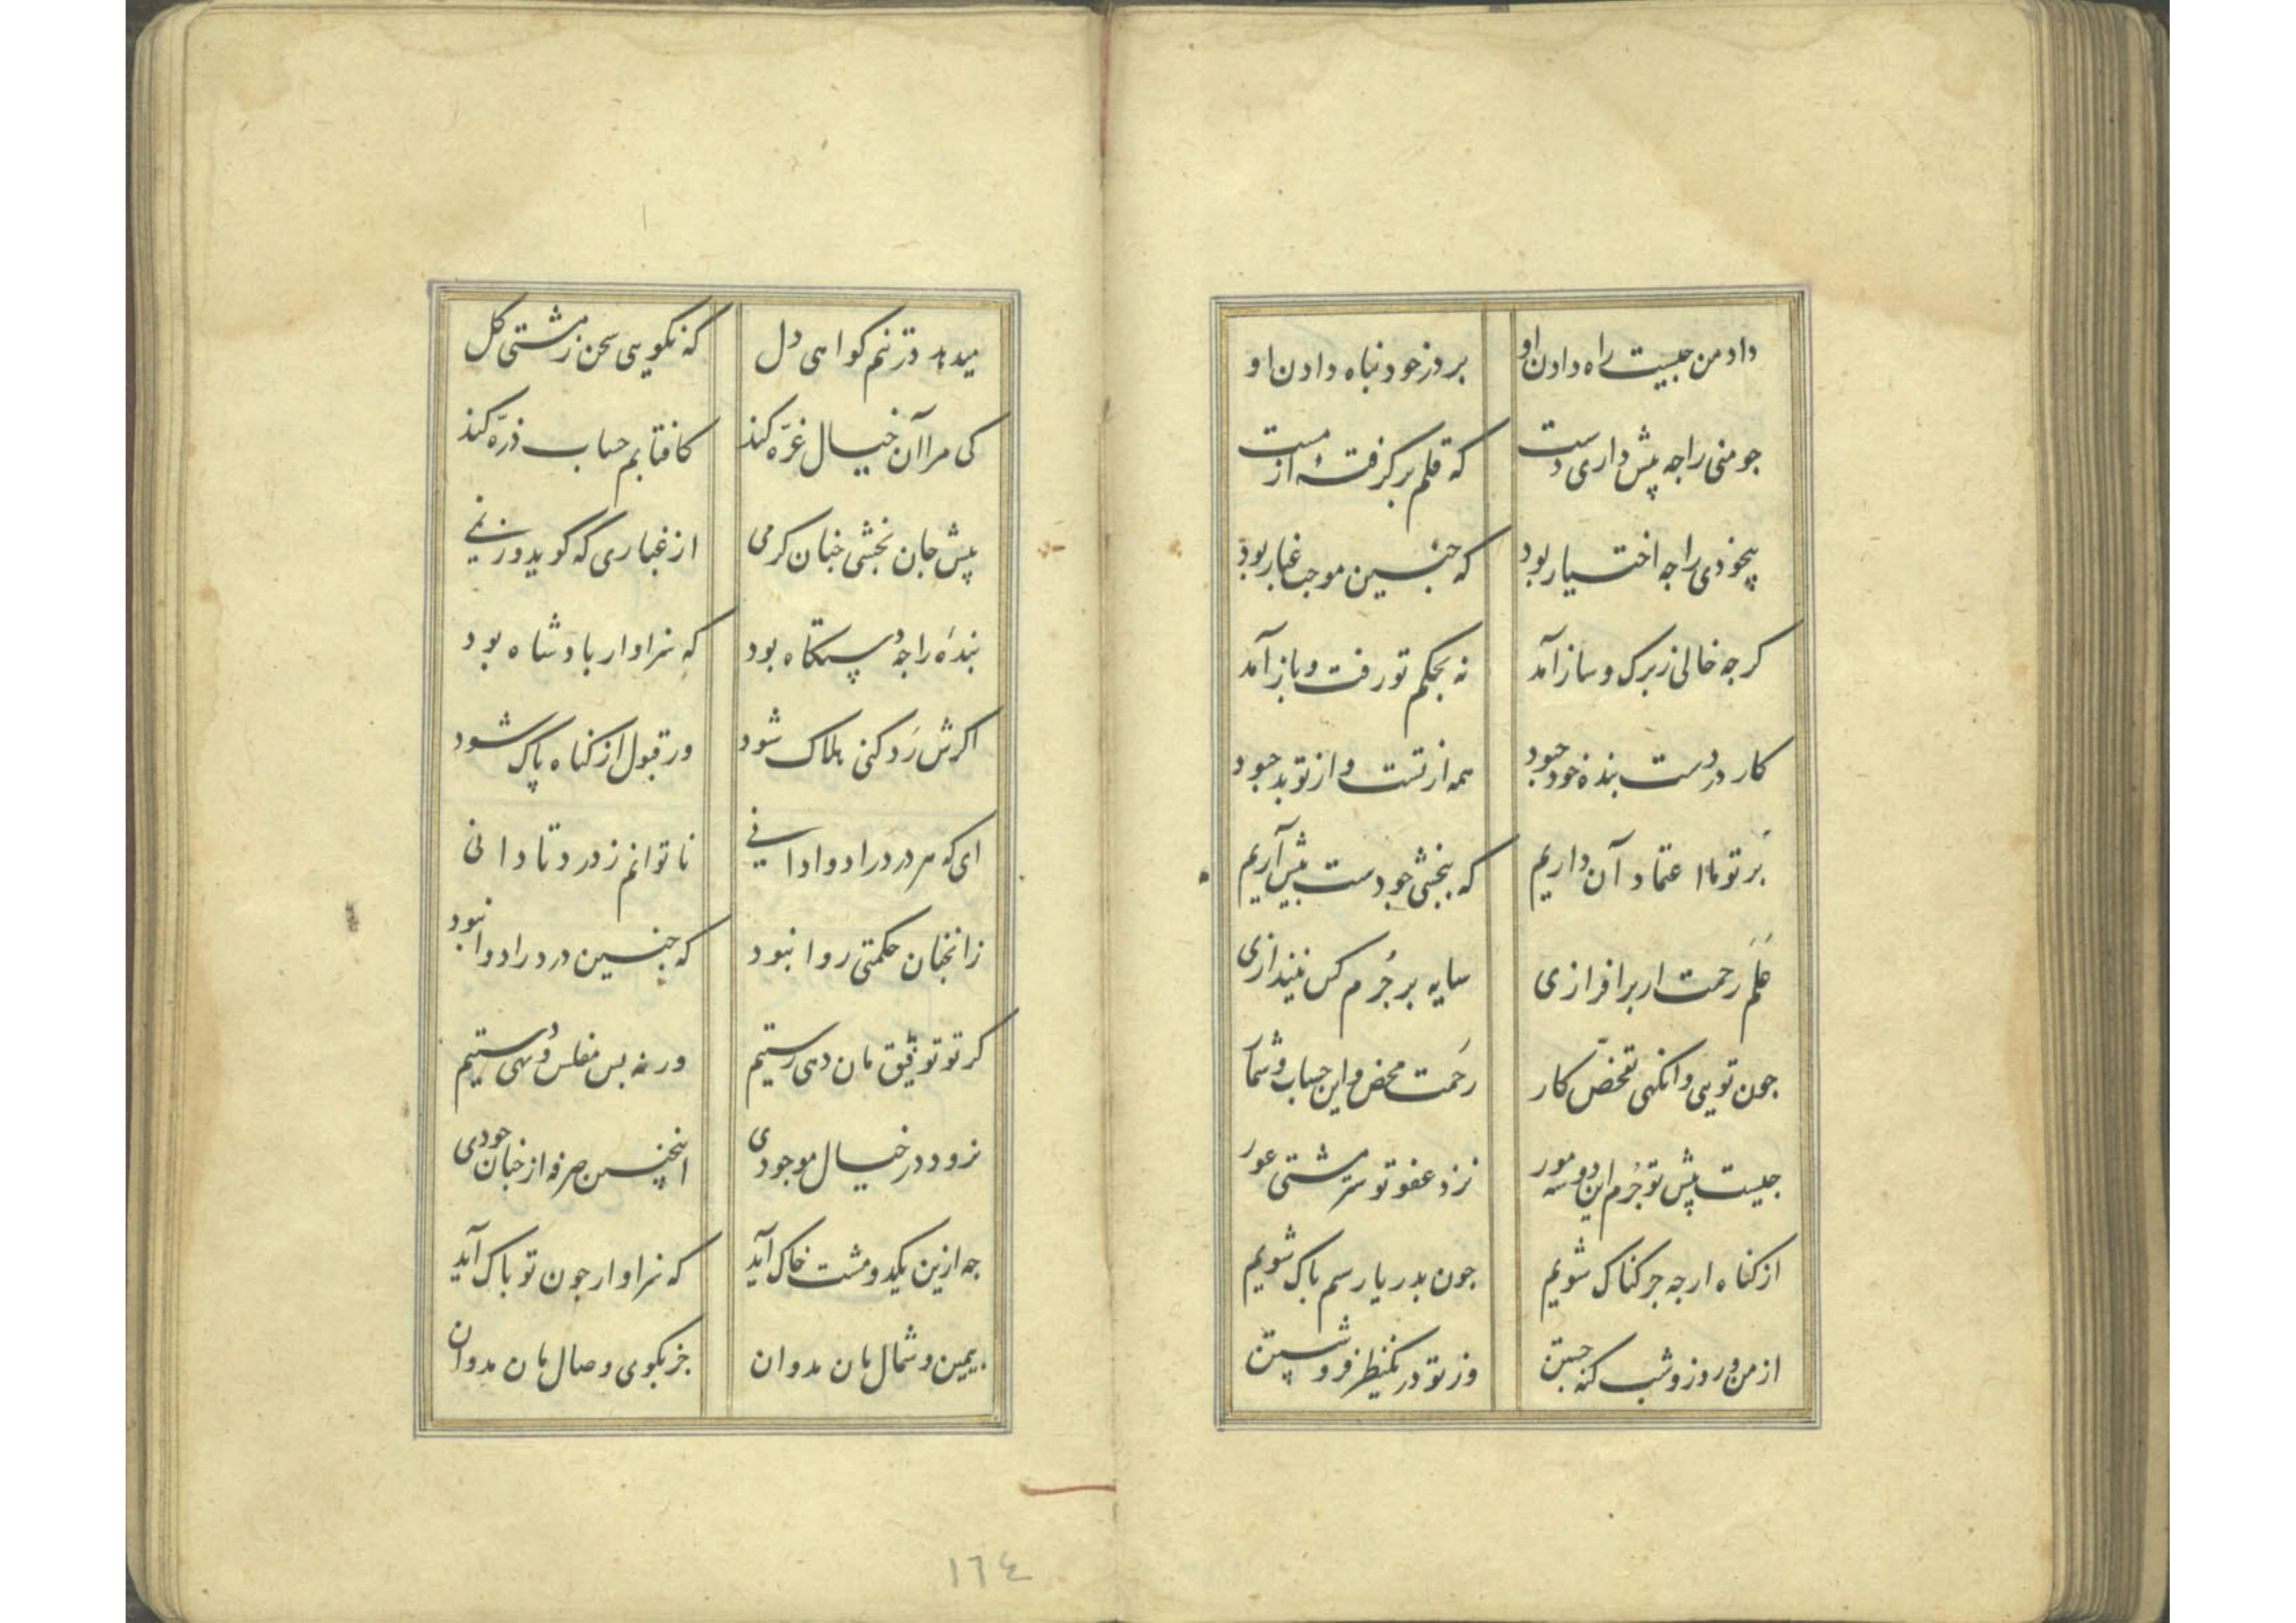 داد من جیست راه دادن او بر در خود نباه دادن او
جو منی را جه پیش داری دست که قلم برکرفتهٔ از مست
بیخودی را جه اختیار بود که جنین موجب غبار بود
کرجه خالی ز برک و ساز آمد نه بحکم تو رفت و باز آمد
کار در دست بنده خود جبود همه از تست و از تو بد جبود
بر تو ما اعتماد آن داریم که ببخشی جو دست پیش آریم
علم رحمت ار برافرازی سایه بر جرم کس نیندازی
جون تویی وانکهی تفحص کار رحمت محض و این حساب و شمار
جیست پیش تو جرم این دو سه مور نزد عفو تو سرمشتی عور
از کناه ارجه جرکناک شویم جون بدریا رسم باک شویم
از من و روز و شب کنه جستن وز تو در یکنظر فرو شستن
میدهد در تنم کواهی دل که نکویی سخن ز مشتی کل
کی مرا آن خیال غره کند کافتابم حساب ذره کند
پیش جان بخشی جنان کرمی از غباری که کوید و زنمی
بندهٔ را جه دستکاه بود که سزاوار بادشاه بود
اکرش رد کنی هلاک شود ور قبول از کناه پاک شود
ای که هر درد را دوا دانی ناتوانم ز درد تا دانی
زانجنان حکمتی روا نبود که جنین درد را دوا نبود
کر تو توفیق مان دهی رستیم ورنه بس مفلس و تهی دستیم
نرود در خیال موجودی اینجنین صرفه از جنان جودی
جه ازین یکدو مشت خاک آید که سزاوار جون تو باک آید
بیمین و شمال مان مدوان جز بکوی وصال مان مدوان
١٦٤